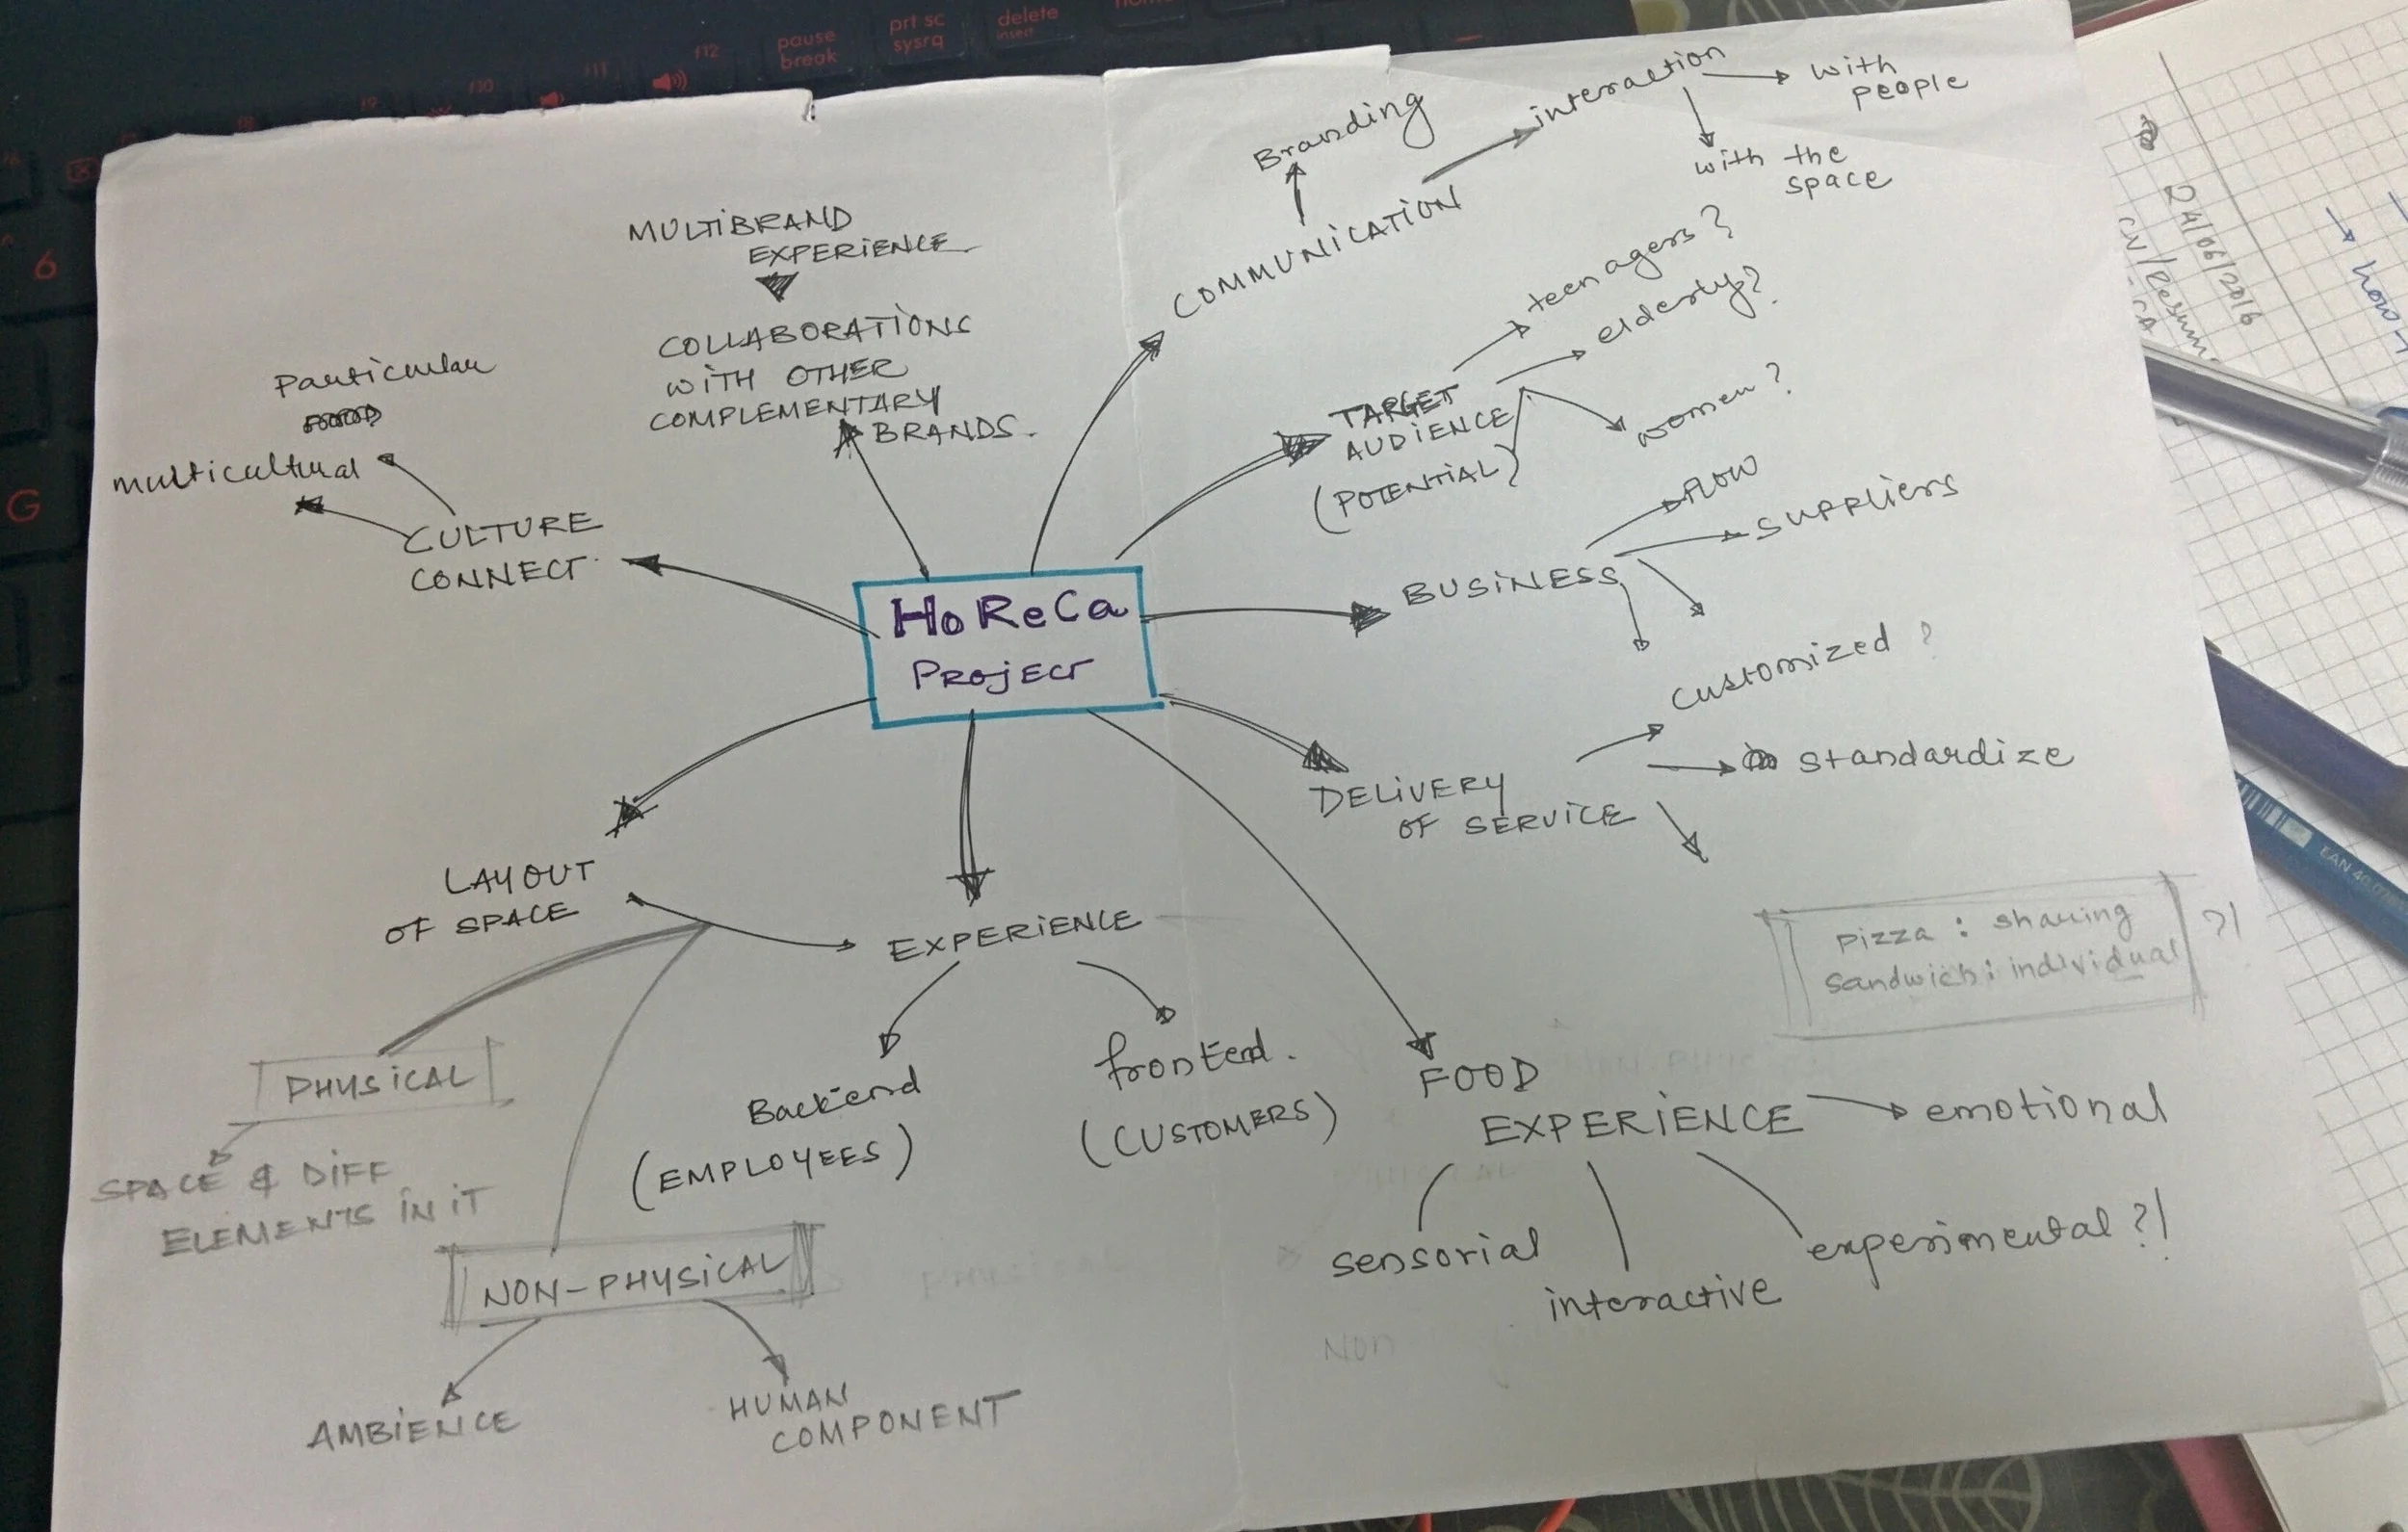 pause
break
prt sc
sysrq
delete
insert
f12
f11
f10
f9
6
G
MULTIBRAND
EXPERIENCE
COLLABORATIONS
WITH OTHER
COMPLEMENTARY
BRANDS.
Branding
interaction
with
people
with the
space
COMMUNICATION
Particular
multicultural
CULTURE
CONNECT
teenagers?
elderly?
women?
TARGET
AUDIENCE
(POTENTIAL)
HoReCa
PROJECT
BUSINESS
FLOW
SUPPLIERS
DELIVERY
OF SERVICE
customized ?
standardize
Pizza : sharing
Sandwich : individual
?!
LAYOUT
OF SPACE
EXPERIENCE
Backend
(EMPLOYEES)
frontend.
(CUSTOMERS)
PHYSICAL
SPACE & DIFF
ELEMENTS IN IT
NON-PHYSICAL
AMBIENCE
HUMAN
COMPONENT
FOOD
EXPERIENCE
emotional
sensorial
interactive
experimental ?!
Non
24/06/2016
how